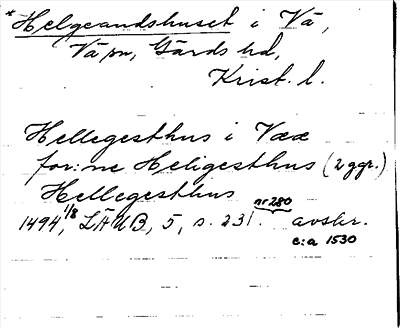 *Helgeandshuset i Vä,
Vä sn, Gärds hd,
Krist. l.
Hellegesthus i Væœ
for:ne Heligesthus (2 ggr.)
Hellegesthus
1494, 1/8 LÄUB, 5, s. 231. nr 280 avskr.
c:a 1530